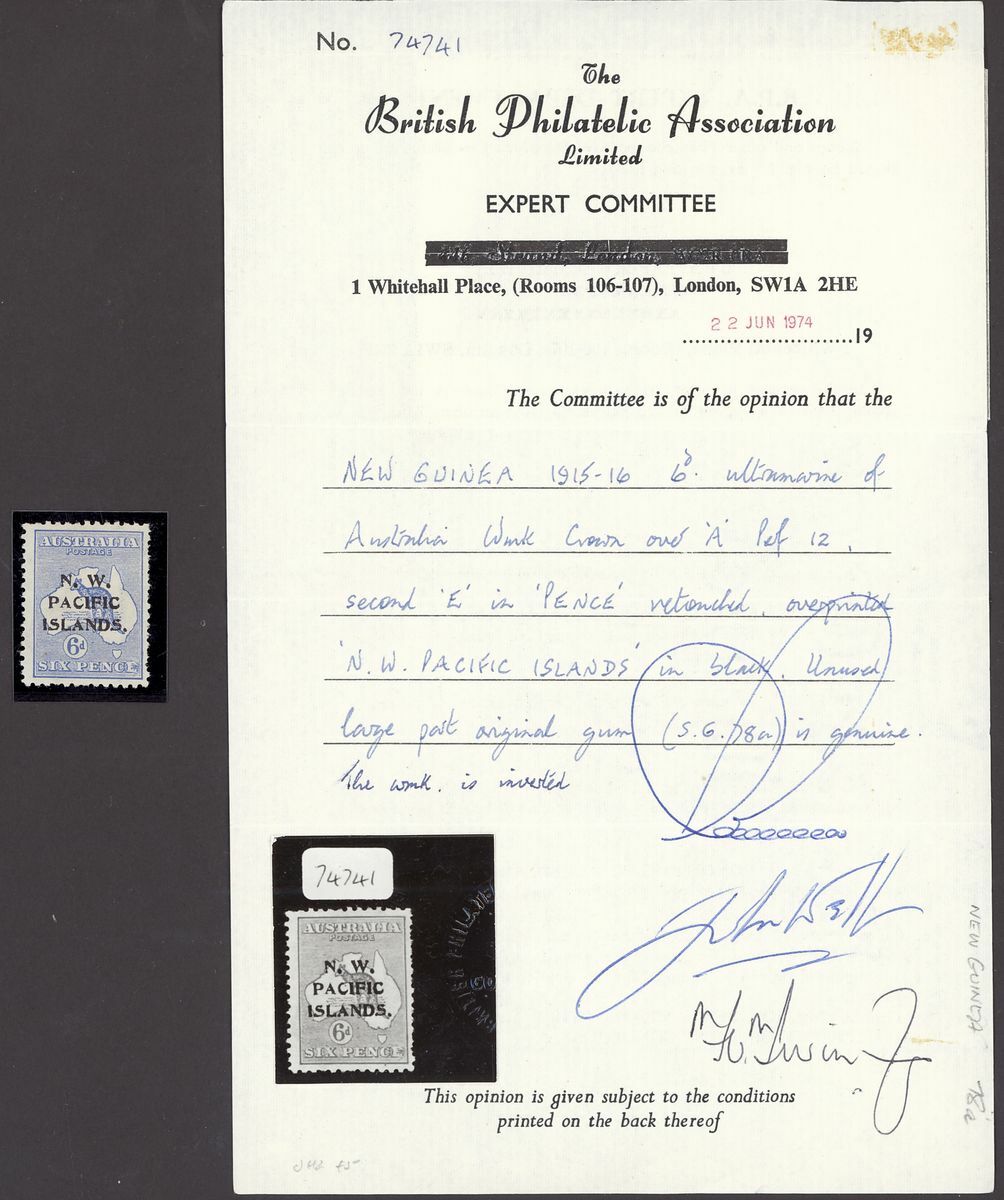 No. 74741
The
British Philatelic Association
Limited
EXPERT COMMITTEE
1 Whitehall Place, (Rooms 106-107), London, SW1A 2HE
22 JUN 1974
19
The Committee is of the opinion that the
NEW GUINEA 1915-16 6d. ultramarine of
Australia Wmk Crown over 'A' Perf 12.
second 'E' in 'PENCE' retouched, overprinted
'N.W. PACIFIC ISLANDS' in black. Unused
large part original gum (S.G. 78a) is genuine.
The wmk. is inverted
AUSTRALIA
POSTAGE
N. W.
PACIFIC
ISLANDS.
6d
SIX PENCE
74741
AUSTRALIA
POSTAGE
N. W.
PACIFIC
ISLANDS.
6d
SIX PENCE
NEW GUINEA 78a
This opinion is given subject to the conditions
printed on the back thereof